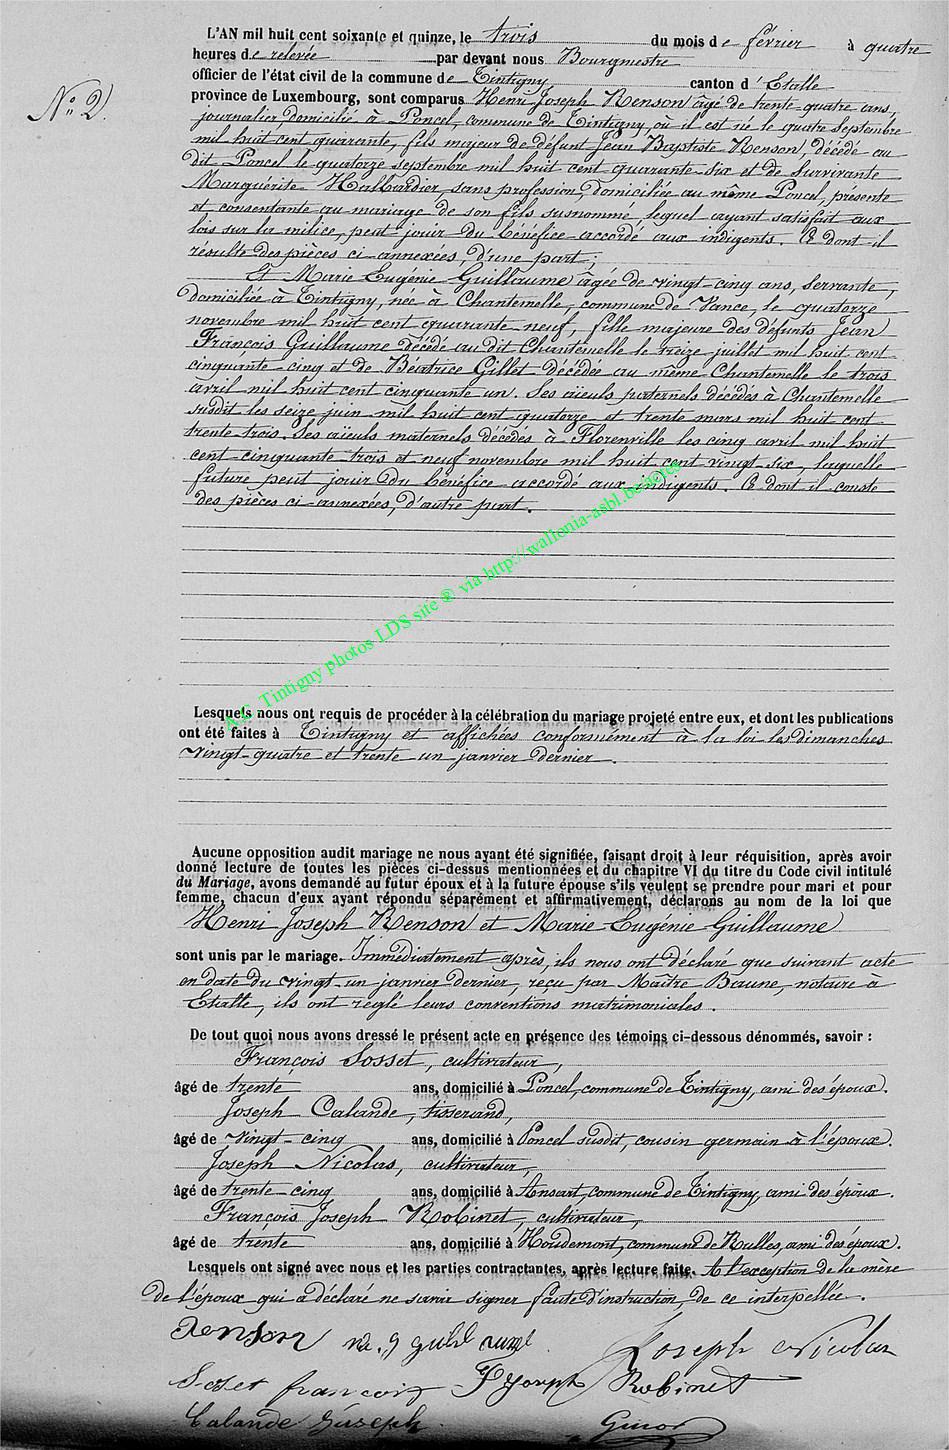 L'AN mil huit cent soixante et quinze, le trois du mois de février à quatre
heures de relevée par devant nous Bourgmestre
officier de l'état civil de la commune de Tintigny canton d'Etalle
N° 2.
province de Luxembourg, sont comparus Henri Joseph Renson âgé de trente-quatre ans,
journalier domicilié à Poncel, commune de Tintigny où il est né le quatre septembre
mil huit cent quarante, fils majeur de défunt Jean Baptiste Renson décédé au
dit Poncel le quatorze septembre mil huit cent quarante-six et de survivante
Marguérite Halbardier, sans profession, domiciliée au même Poncel, présente
et consentante au mariage de son fils susnommé, lequel ayant satisfait aux
lois sur la milice, peut jouir du bénéfice accordé aux indigents. Ce dont il
résulte des pièces ci-annexées, d'une part;
Et Marie Eugénie Guillaume âgée de vingt-cinq ans, servante,
domiciliée à Tintigny, née à Chantemelle, commune de Vance, le quatorze
novembre mil huit cent quarante-neuf, fille majeure des défunts Jean
François Guillaume décédé au dit Chantemelle le treize juillet mil huit cent
cinquante-cinq et de Béatrice Gillet décédée au même Chantemelle le trois
avril mil huit cent cinquante un. Ses aïeuls paternels décédés à Chantemelle
susdit les seize juin mil huit cent quatorze et trente mars mil huit cent
trente-trois. Ses aïeuls maternels décédés à Florenville les cinq avril mil huit
cent cinquante trois et neuf novembre mil huit cent vingt-six, laquelle
future peut jouir du bénéfice accordé aux indigents. Ce dont il conste
des pièces ci-annexées, d'autre part.
A.C. Tintigny photos LDS site ® via http://wallonia-asbl.be/actes
Lesquels nous ont requis de procéder à la célébration du mariage projeté entre eux, et dont les publications
ont été faites à Tintigny et affichées conformément à la loi les dimanches
vingt-quatre et trente un janvier dernier.
Aucune opposition audit mariage ne nous ayant été signifiée, faisant droit à leur réquisition, après avoir
donné lecture de toutes les pièces ci-dessus mentionnées et du chapitre VI du titre du Code civil intitulé
du Mariage, avons demandé au futur époux et à la future épouse s'ils veulent se prendre pour mari et pour
femme, chacun d'eux ayant répondu séparément et affirmativement, déclarons au nom de la loi que
Henri Joseph Renson et Marie Eugénie Guillaume
sont unis par le mariage. Immédiatement après, ils nous ont déclaré que suivant acte
en date du vingt-un janvier dernier, reçu par Maître Beaune, notaire à
Etalle, ils ont réglé leurs conventions matrimoniales.
De tout quoi nous avons dressé le présent acte en présence des témoins ci-dessous dénommés, savoir :
François Sosset, cultivateur,
âgé de trente ans, domicilié à Poncel, commune de Tintigny, ami des époux.
Joseph Calande, tisserand,
âgé de vingt-cinq ans, domicilié à Poncel susdit, cousin germain à l'époux.
Joseph Nicolas, cultivateur,
âgé de trente-cinq ans, domicilié à Ansart, commune de Tintigny, ami des époux.
François Joseph Robinet, cultivateur,
âgé de trente ans, domicilié à Houdemont, commune de Rulles, ami des époux.
Lesquels ont signé avec nous et les parties contractantes, après lecture faite. A l'exception de la mère
de l'époux qui a déclaré ne savoir signer faute d'instruction, de ce interpellée.
Renson Joseph Nicolas
Sosset françois F Joseph Robinet
Calande Joseph